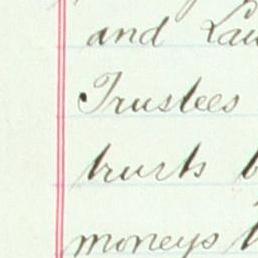 and
Trustees
trusts
moneys